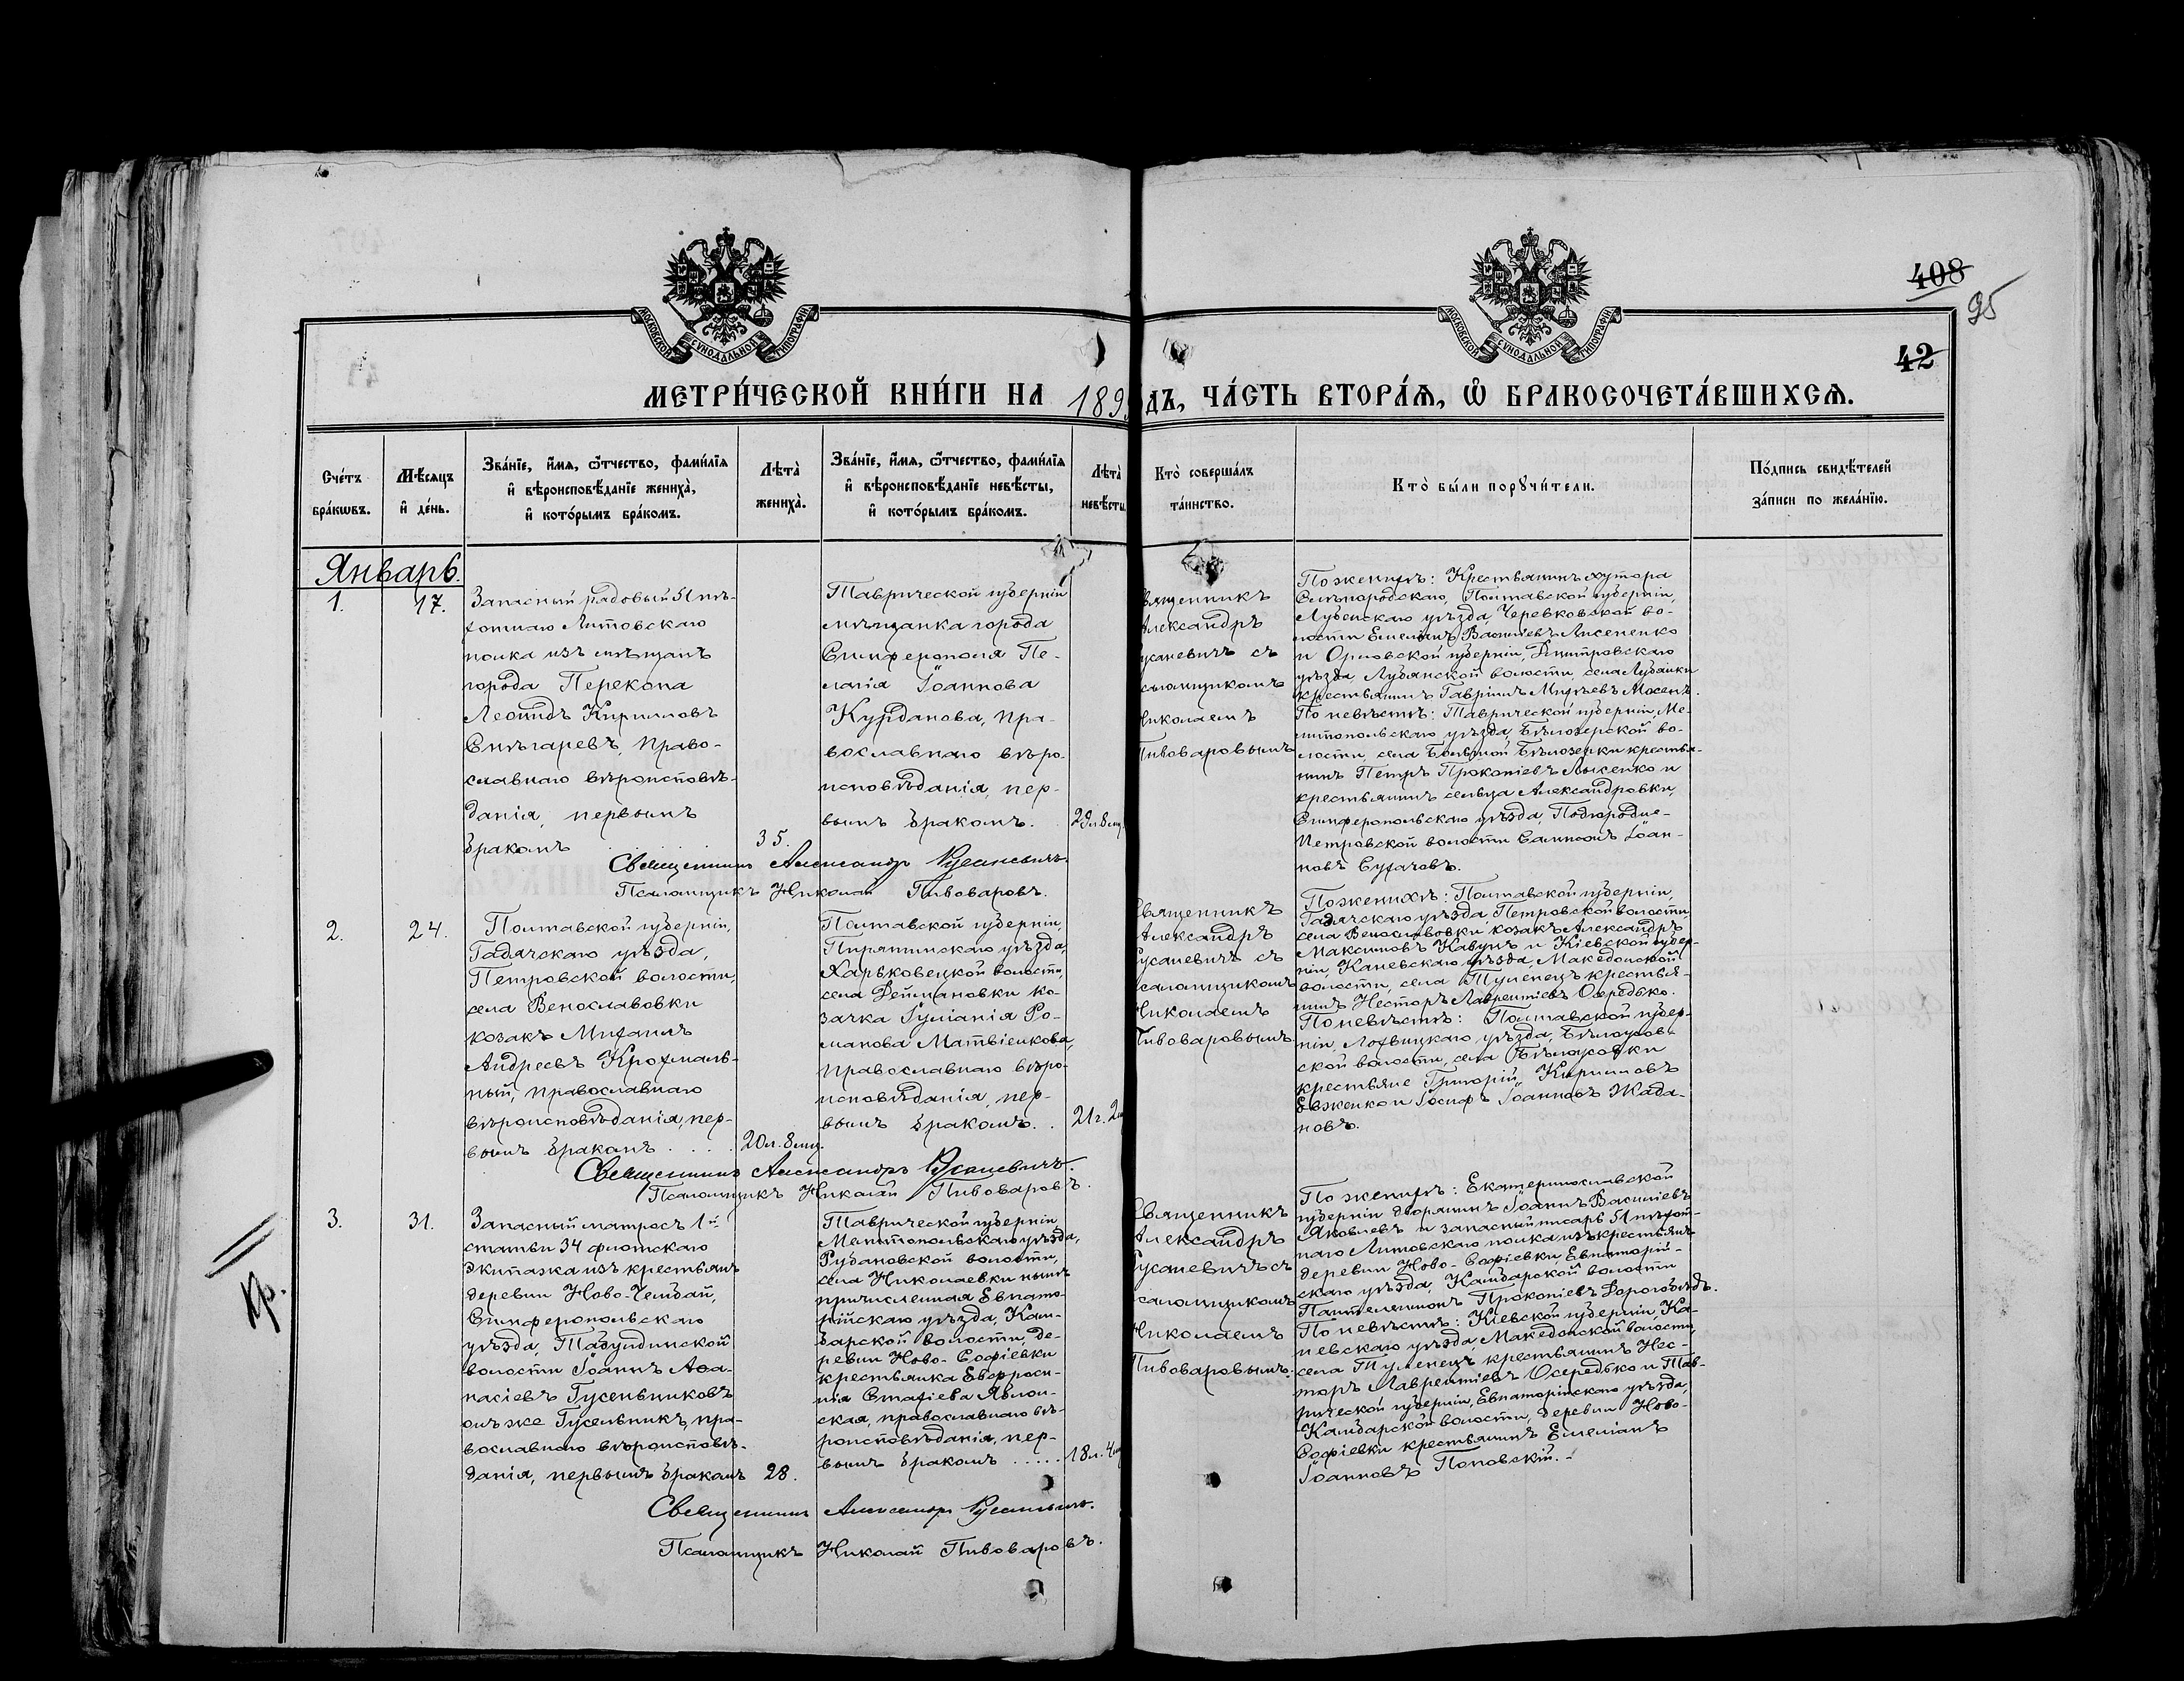 408
95
42
МОСКОВСКОЙ СѴНОДАЛЬНОЙ ТИПОГРАФІИ
МОСКОВСКОЙ СѴНОДАЛЬНОЙ ТИПОГРАФІИ
МЕТРИ́ЧЕСКОЙ КНИ́ГИ НА 189 ДЪ, ЧА́СТЬ ВТОРА́Я, Ѽ БРАКОСОЧЕТА́ВШИХСЯ.
Сче́тъ бра́кѡвъ.
Мѣ́сяцъ и҆ де́нь.
Зва́нїе, и҆́мя, ѻ҆́тчество, фами́лїя
и҆ вѣроисповѣ́данїе жениха̀,
и҆ кото́рымъ бра́комъ.
Лѣта̀ жениха̀.
Зва́нїе, и҆́мя, ѻ҆́тчество, фами́лїя
и҆ вѣроисповѣ́данїе невѣ́сты,
и҆ кото́рымъ бра́комъ.
Лѣта̀ невѣ́сты
Кто̀ соверша́лъ
та́инство.
Кто̀ бы́ли порꙋчи́тели.
По́дпись свидѣ́телей
за́писи по жела́нїю.
Январь.
1.
17.
Запасный рядовый 51 пѣ-
хотнаго Литовскаго
полка изъ мѣщанъ
города Перекопа
Леонидъ Кирилловъ
Снѣгаревъ, право-
славнаго вѣроисповѣ-
данія, первымъ
бракомъ
35.
Таврической губерніи
мѣщанка города
Симферополя Пе-
лагія Іоаннова
Курданова, пра-
вославнаго вѣро-
исповѣданія, пер-
вымъ бракомъ.
29л 8 мц
вященникъ
Александръ
усаневичъ съ
саломщикомъ
Николаемъ
Пивоваровымъ
По женихѣ: Крестьянинъ хутора
Полтавской губерніи,
Лубенскаго уѣзда, Черевковской во-
лости Емельянъ Васильевъ Лисененко
и Орловской губерніи, Дмитровскаго
уѣзда, Лубянской волости, села Лубянки
крестьянинъ Гавріилъ
По невѣстѣ: Таврической губерніи, Ме-
литопольскаго уѣзда, Бѣлозерской во-
лости, села Большой Бѣлозерки крестья-
нинъ Петръ Прокопіевъ Лысенко и
крестьянинъ сельца Александровки,
Симферопольскаго уѣзда, Подгородне-
Петровской волости Самсонъ Іоан-
новъ Сугачовъ.
Священникъ Александръ Русаневичъ
Псаломщикъ Николай Пивоваровъ.
2.
24.
Полтавской губерніи,
Гадячскаго уѣзда,
Петровской волости,
села Венославовки
козакъ Михаилъ
Андреевъ Крохмаль-
ный, православнаго
вѣроисповѣданія, пер-
вымъ бракомъ . . .
20л. 8 мц.
Полтавской губерніи,
Пирятинскаго уѣзда,
Харьковецкой волости,
села Деймановки ко-
зачка Іуліанія Ро-
манова Матвіенкова,
православнаго вѣро-
исповѣданія, пер-
вымъ бракомъ. .
21г. 2м
вященникъ
Александръ
усаневичъ съ
саломщикомъ
Николаемъ
Пивоваровымъ
По женихѣ: Полтавской губерніи,
Гадячскаго уѣзда, Петровской волости
села Венославовки козакъ Александръ
Максимовъ Кавунъ и Кіевской губер-
ніи, Каневскаго уѣзда, Македонской
волости, села Туленецъ крестья-
нинъ Несторъ Лаврентіевъ Осередько.
По невѣстѣ: Полтавской губер-
ніи, Лохвицкаго уѣзда, Бѣлоусов-
ской волости, села Бѣлоусовки
крестьяне Григорій Кирилловъ
Евженко и Іосифъ Іоанновъ Жада-
новъ.
Священникъ Александръ Русаневичъ.
Псаломщикъ Николай Пивоваровъ.
3.
31.
Запасный матросъ 1й
статьи 34 флотскаго
экипажа изъ крестьянъ
деревни Ново-Чембай,
Симферопольскаго
уѣзда, Табулдинской
волости Іоаннъ Аѳа-
насіевъ Гусельниковъ
онъ же Гусельникъ, пра-
вославнаго вѣроисповѣ-
данія, первымъ бракомъ
28.
Таврической губерніи
Мелитопольскаго уѣзда,
Рубановской волости,
села Николаевки нынѣ
причисленная Евпато-
рійскаго уѣзда, Кам-
барской волости, де-
ревни Ново-Софіевки
крестьянка Евфроси-
нія Стафіева Яблон-
ская, православнаго вѣ-
роисповѣданія, пер-
вымъ бракомъ . . . . .
18л. 4м
Священникъ
Александръ
усаневичъ съ
саломщикомъ
Николаемъ
Пивоваровымъ.
По женихѣ: Екатеринославской
губерніи дворянинъ Іоаннъ Васильевъ
Яковлевъ и запасный писарь 51 пѣхот-
наго Литовскаго полка изъ крестьянъ
деревни Ново-Софіевки, Евпаторій-
скаго уѣзда, Камбарской волости
Пантелеимонъ Прокопіевъ Дорогобѣдъ.
По невѣстѣ: Кіевской губерніи, Ка-
невскаго уѣзда, Македонской волости,
села Туленецъ крестьянинъ Нес-
торъ Лаврентіевъ Осередько и Тав-
рической губерніи, Евпаторійскаго уѣзда,
Камбарской волости, деревни Ново-
Софіевки крестьянинъ Емеліанъ
Іоанновъ Поповскій.
Священникъ Александръ Русаневичъ.
Псаломщикъ Николай Пивоваровъ.